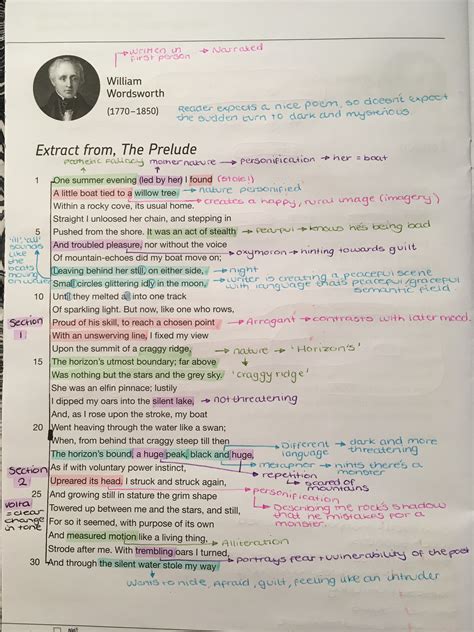 written in → Narrated
first person
William
Wordsworth
(1770–1850)
Reader expects a nice poem, so doesn't expect
the sudden turn to dark and mysterious.
Extract from, The Prelude
Pathetic fallacy mother nature → personification → her = boat
1 One summer evening (led by her) I found (stole!)
A little boat tied to a willow tree → nature personified
→ creates a happy, rural image (imagery)
Within a rocky cove, its usual home.
Straight I unloosed her chain, and stepping in
5 Pushed from the shore. It was an act of stealth → fearful → knows he's being bad
And troubled pleasure, nor without the voice
→ oxymoron → hinting towards guilt
Of mountain-echoes did my boat move on;
Leaving behind her still, on either side, → night
Small circles glittering idly in the moon, → writer is creating a peaceful scene
with language thats peaceful/graceful
semantic field
'ill', 'all'
sounds
like
the
boats
on water
10 Until they melted all into one track
Of sparkling light. But now, like one who rows,
Section
1
Proud of his skill, to reach a chosen point → Arrogant → contrasts with later mood.
With an unswerving line, I fixed my view
Upon the summit of a craggy ridge, → nature → 'Horizon's'
15 The horizon's utmost boundary; far above → 'craggy ridge'
Was nothing but the stars and the grey sky.
She was an elfin pinnace; lustily
I dipped my oars into the silent lake, → not threatening
And, as I rose upon the stroke, my boat
20 Went heaving through the water like a swan;
When, from behind that craggy steep till then
→ Different → dark and more
language threatening
The horizon's bound, a huge peak, black and huge,
→ metaphor → hints there's a
monster
Section
2
As if with voluntary power instinct,
→ repetition → scared of
mountains
Upreared its head. I struck and struck again,
→ personification
25 And growing still in stature the grim shape
volta
= clear
change
in tone
→ Describing the rock's shadow
that he mistakes for a
monster.
Towered up between me and the stars, and still,
For so it seemed, with purpose of its own
And measured motion like a living thing,
→ Alliteration
Strode after me. With trembling oars I turned,
→ portrays fear + vulnerability of the poet
30 And through the silent water stole my way
→ Wants to hide, afraid, guilt, feeling like an intruder